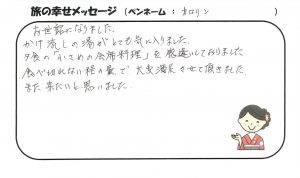 旅の幸せメッセージ（ペンネーム：オロリン　）
お世話になりました。
かけ流しの湯がとても気に入りました。
夕食の「かさねの会席料理」を感違いしておりました
食べ切れない程の量で大変満足させて頂きました。
また来たいと思いました。